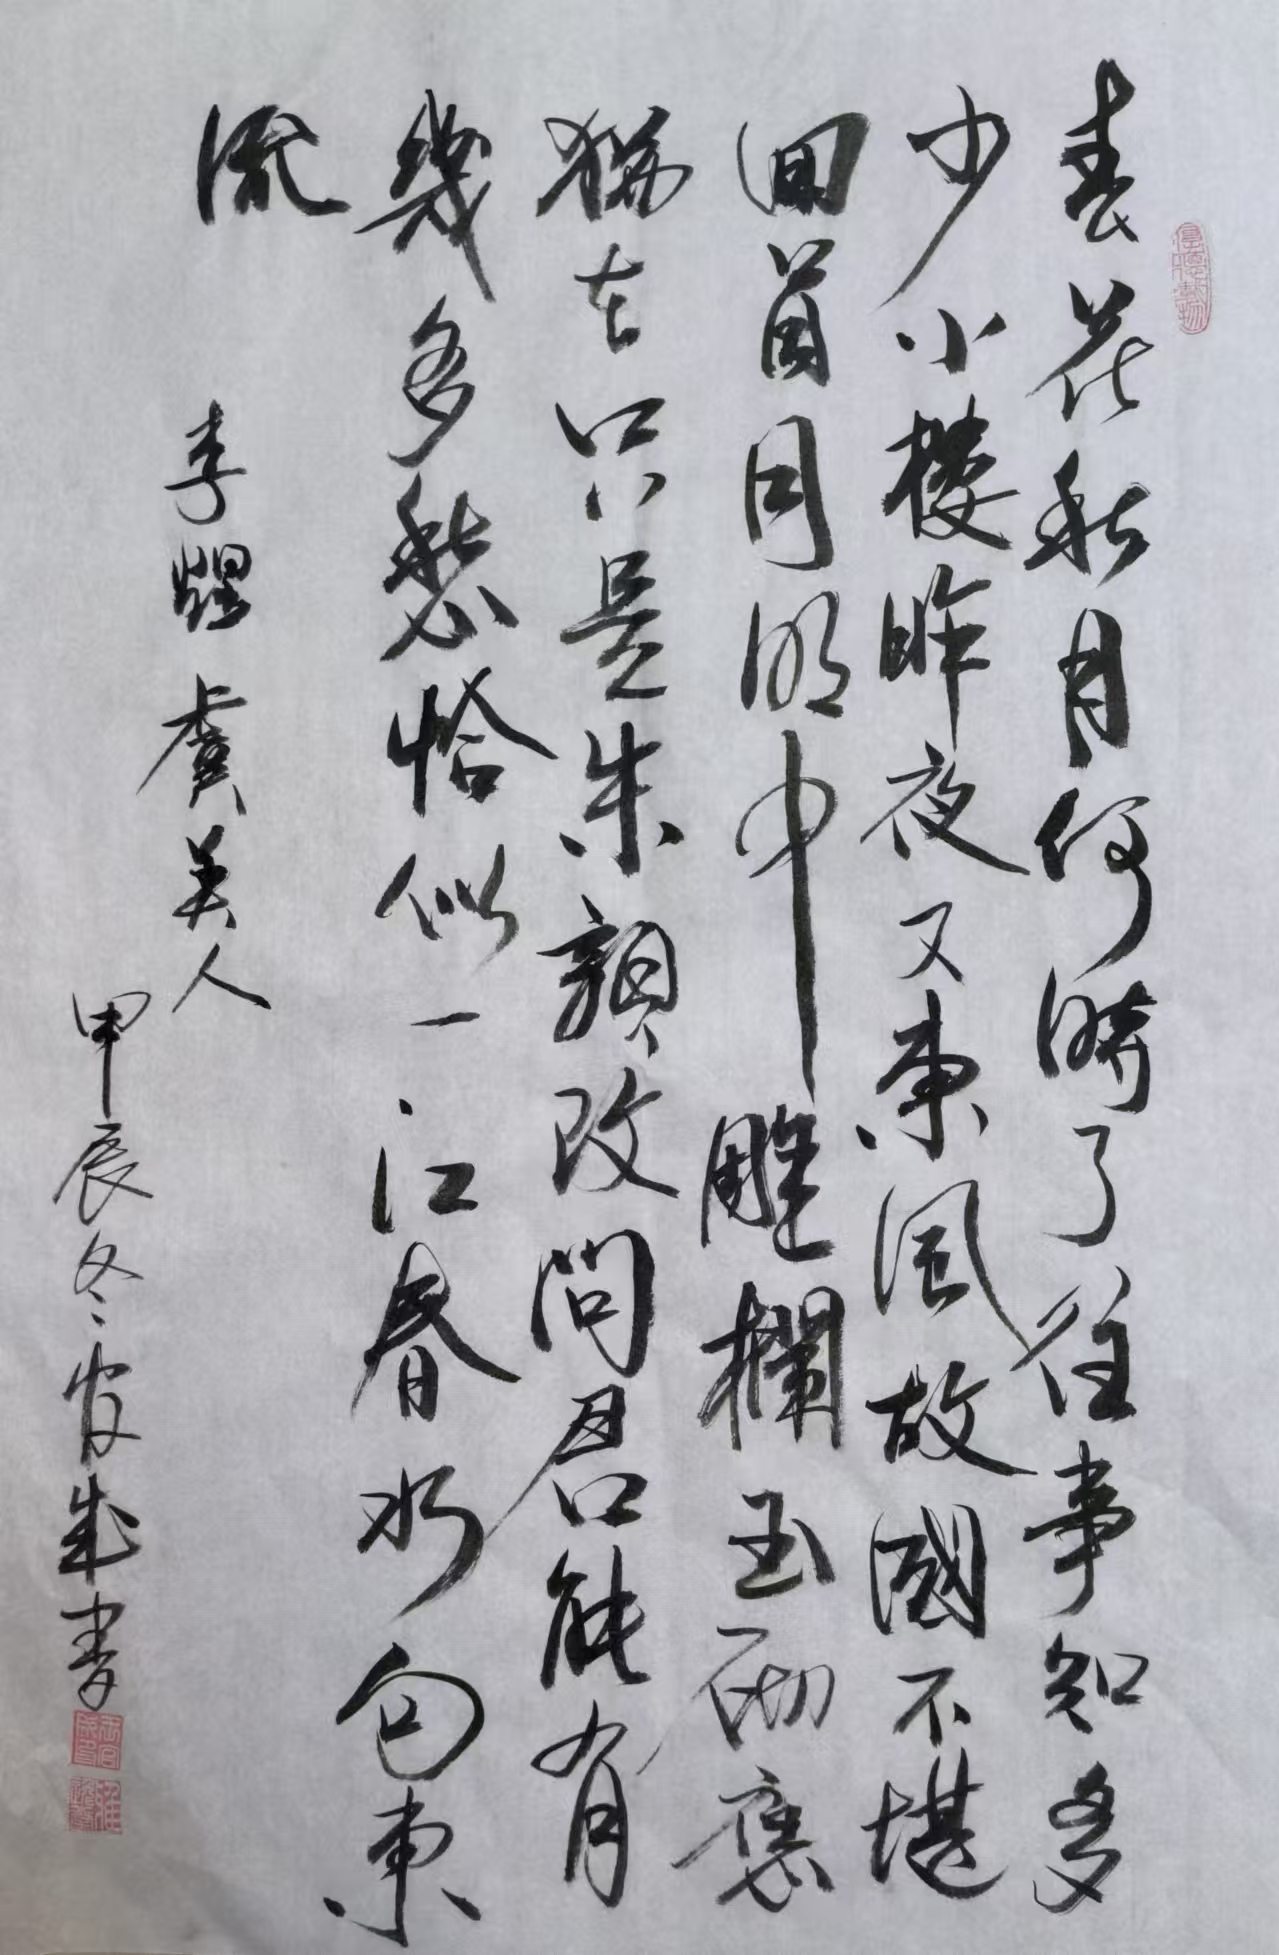 春花秋月何時了往事知多
少小樓昨夜又東風故國不堪
回首月明中雕欄玉砌應
猶在只是朱顏改問君能有
幾多愁恰似一江春水向東
流
李煜 虞美人
甲辰冬 成書
厚德載物